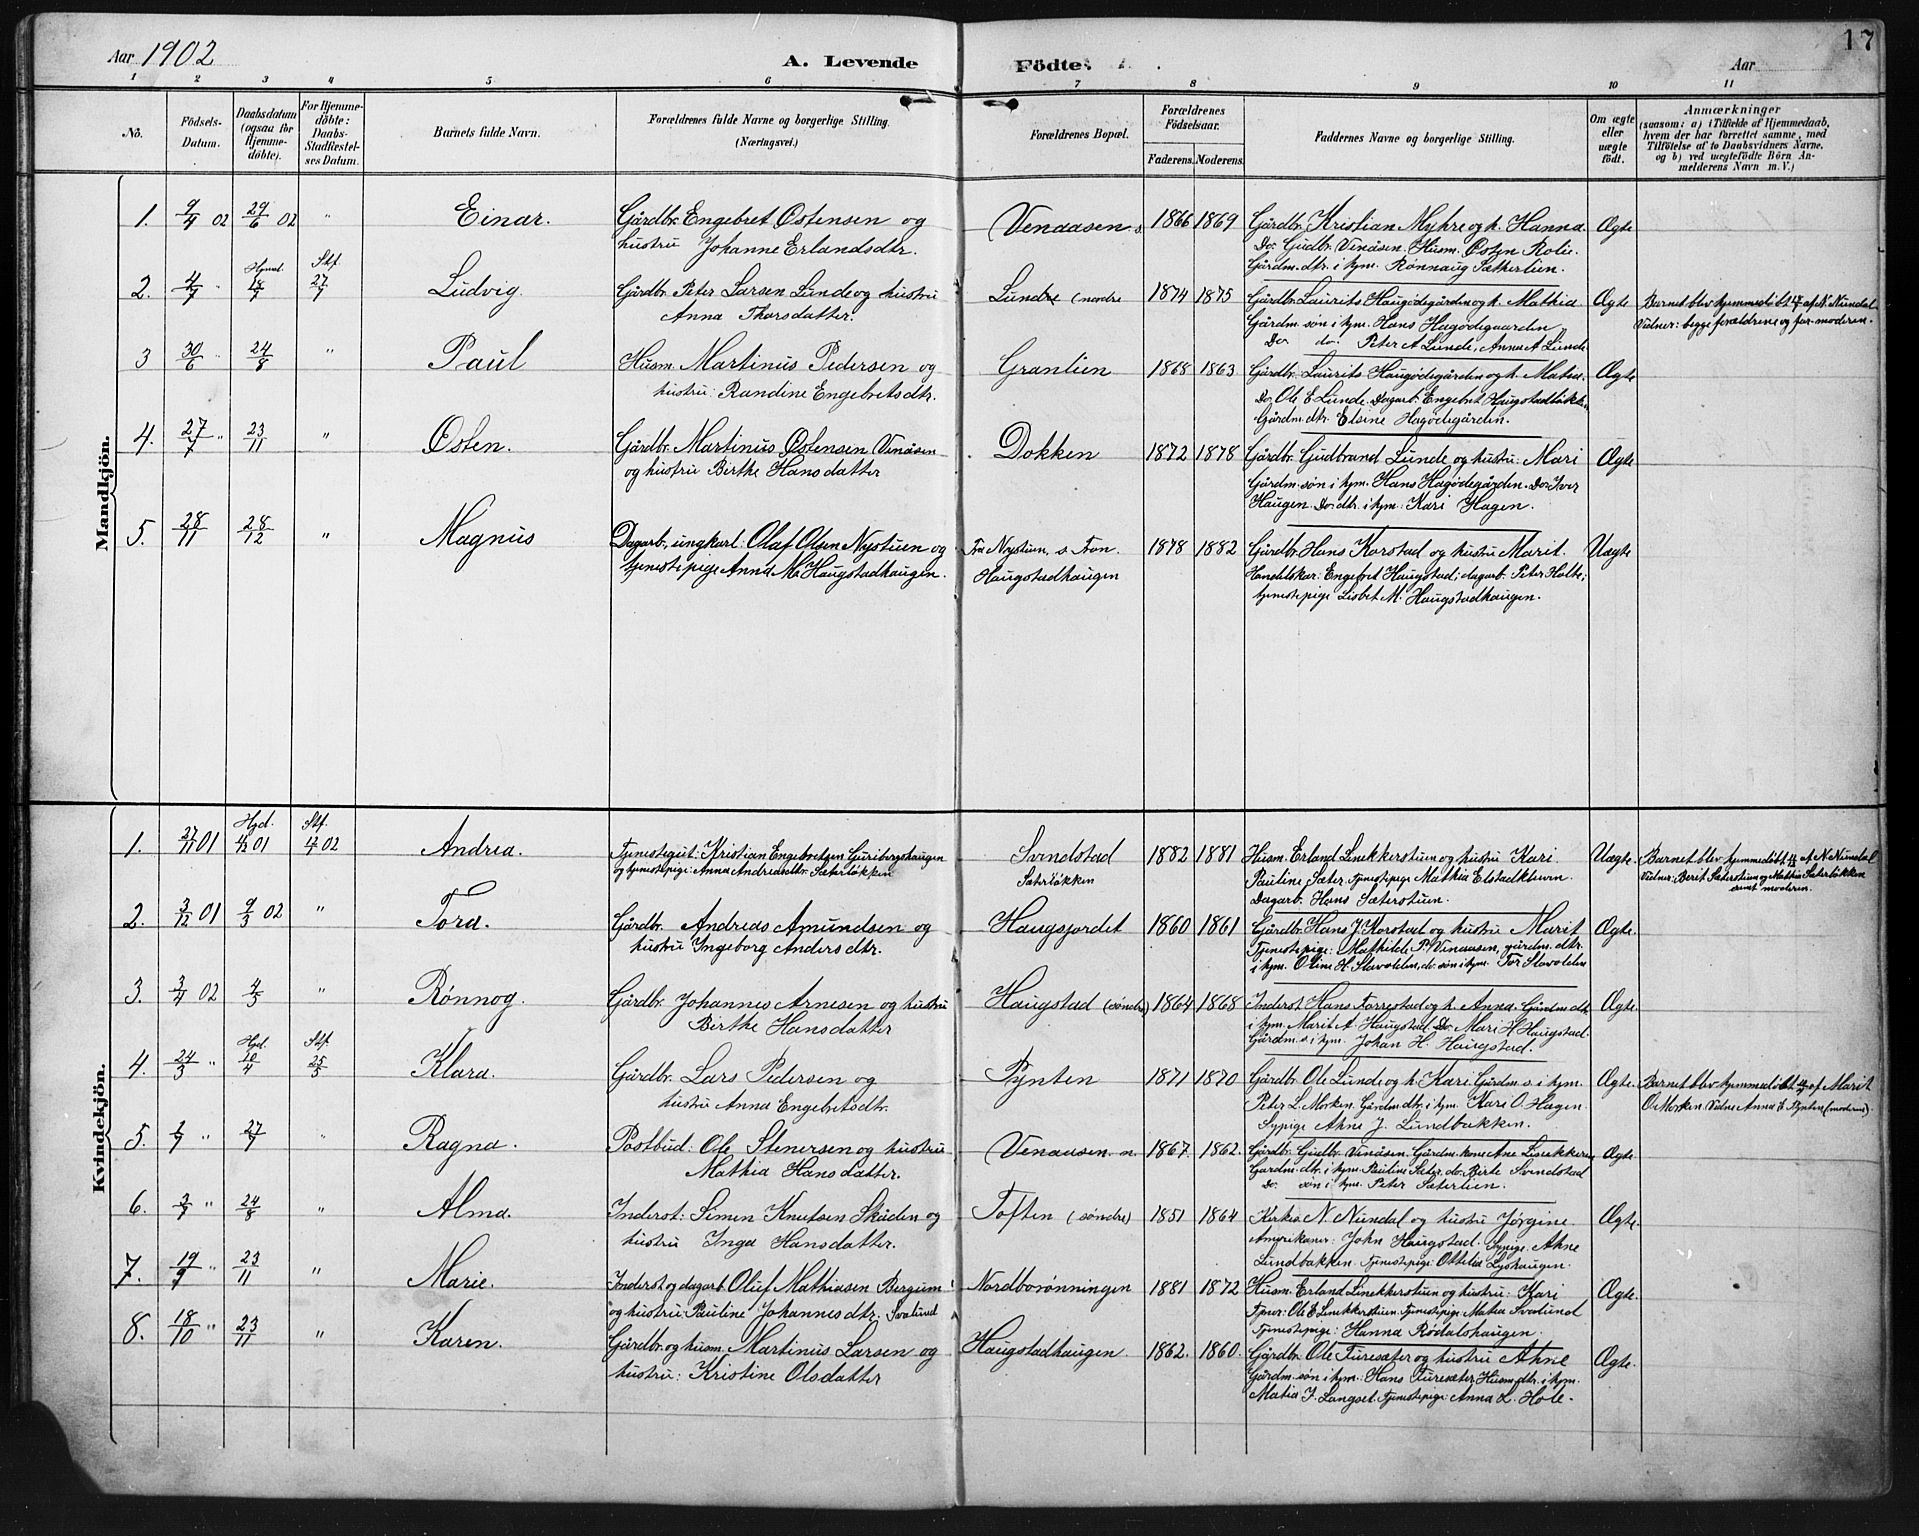 Aar 1902
A. Levende
Födte.
Aar
17
1 2 3 4 5 6 7 8 9 10 11
No.
Födsels-Datum.
Daabsdatum (ogsaa for Hjemmedøbte).
For Hjemmedöbte: Daabs-Stadfæstelses Datum.
Barnets fulde Navn.
Forældrenes fulde Navne og borgerlige Stilling. (Næringsvei.)
Forældrenes Bopæl.
Forældrenes Födselsaar.
Faderens. Moderens.
Faddernes Navne og borgerlige Stilling.
Om ægte eller uægte födt.
Anmærkninger
(saasom: a) i Tilfælde af Hjemmedaab, hvem der har forrettet samme, med Tilföielse af to Daabsvidners Navne, og b) ved uægtefödte Börn Anmelderens Navn m. V.)
Mandkjön.
1. 9/4 02 29/6 02 " Einar. Gårdbr. Engebret Østensen og
hustru Johanne Erlandsdtr.
Venaasen s 1866 1869
Gårdbr. Kristian Myhre og h. Hanna
Do Gudbr. Venåsen. Husm. Østen Rolie.
Gårdm. dtr. i hjm. Rønnaug Sætherlien.
Ægte
2. 4/7 " Hjmd. 18/7 Stf. 27/7 Ludvig. Gårdbr. Peter Larsen Lunde og hustru
Anna Thorsdatter.
Lunde (nordre 1874 1875
Gårdbr. Laurits Haugødegården og h. Mathia
Gårdm. søn i hjm. Hans Hagødegaarden
Do do. Peter A Lunde, Anna A Lunde
Ægte
Barnet blev hjemmedøbt af N. Nundal
Vidner: begge forældrene og far-moderen.
3 30/6 " 24/8 " Paul Husm. Martinus Pedersen og
hustru: Randine Engebretsdtr.
Granlien 1868 1863
Gårdbr. Laurits Haugødegården og h. Matia.
Do. Ole E Lunde. Dagarb. Engebret Haugstadløkken
Gårdm. dtr. Elsine Hagødegården.
Ægte
4. 27/7 " 23/11 " Østen. Gårdbr. Martinus Østensen Venåsen
og hustru Birthe Hansdatter
Dokken 1872 1878
Gårdbr. Gudbrand Lunde og hustru: Mari
Gårdm. søn i hjm. Hans Hagødegården. Do. Iver
Haugen. Do. dtr. i hjm: Kari Hagen.
Ægte
5. 28/11 28/12 " Magnus Dagarb., ungkarl: Olaf Olsen Nystuen og
tjenestepige Anna M. Haugstadhaugen.
Fra Nystuen, s. Fron.
Haugstadhaugen
1878 1882
Gårdbr. Hans Korstad og hustru Marit.
Handelskar: Engebret Haugstad; dagarb. Peter Holte;
tjenestepige Lisbet M. Haugstadhaugen.
Uægte
Kvindekjön.
1. 27/11 01 Hjd. 4/12 01 Stf. 02 Andrea. Tjenestegut: Kristian Engebretsen Guribergshaugen
og tjenestepige: Anna Andreasdtr. Sæterløkken
Svindstad
Sæterløkken
1882 1881
Husm. Erland Linekkerstuen og hustru Kari
Pauline Sæter. Tjenestepige Mathia Elstadkleven.
Dagarb. Hans Sæterstuen.
Uægte.
Barnet blev hjemmedøbt af N Nundal
Vidner: Berit Sæterstuen og Mathia Sæterløkken
samt moderen.
2. 3/12 01 9/3 02 " Tora. Gårdbr. Andreas Amundsen og
hustru Ingeborg Andersdtr.
Haugsjordet 1860 1861
Gårdbr. Hans J. Korstad og hustru Marit
Tjenestepige: Mathilde P. Venaasen, gårdm. dtr.
i hjm. Oline H. Slavolden, do. søn i hjm. Tor Slavolden
Ægte.
3. 3/4 02 4/5 " Rønnog. Gårdbr. Johannes Arnesen og hustru
Birthe Hansdatter
Haugstad (søndre) 1864 1868
Inderst Hans Forrestad og h. Anna. Gårdm. dtr
i hjm. Marit A. Haugstad. Do. Mari H. Haugstad.
Gårdm. s. i hjm. Johan H. Haugstad.
Ægte
4. 24/3 " Hjd. 10/4 Stf. 25/5 Klara. Gårdbr. Lars Pedersen og
hustru Anna Engebretsdtr.
Pynten 1871 1870
Gårdbr. Ole Lunde og h. Kari Gårdm. s. i hjm.
Peter L. Morken. Gårdm. dtr. i hjm. Kari O. Hagen.
Sypige Ahne J. Lundbakken.
Ægte.
Barnet blev hjemmedøbt af Marit
O. Morken. Vidne Anna E Pynten (moderen).
5. 2/7 " 27/7 " Ragna. Postbud: Ole Stenersen og hustru
Mathia Hansdatter.
Venaasen n. 1867 1862.
Gårdbr. Gudbr. Venåsen. Gårdm. kone Ane Linekkeren
Gårdm. dtr. i hjm. Pauline Sæter. do. Birte Svindstad
Do søn i hjm. Peter Sæterlien.
Ægte
6. 3/7 " 24/8 " Alma. Inderst: Simen Knutsen Skåden og
hustru Inga Hansdatter.
Toften (søndre) 1851 1864
Kirkes. N. Nundal og hustru Jørgine.
Amerikaner: John Haugstad. Sypige Ahne
Lundbakken. Tjenestepige: Ottilia Lyshaugen.
Ægte.
7. 19/9 " 23/11 " Marie. Inderst og dagarb. Oluf Mathiasen Bergum
og hustru: Pauline Johannesdtr. Svalund
Nordborønningen 1881 1872
Husm. Erland Linekkerstuen og hustru: Kari
Tjener: Ole E Linekkerstuen. Tjenestepige Matea Svalund
Tjenestepige: Hanna Rødalshaugen.
Ægte.
8. 18/10 " 23/11 " Karen. Gårdbr. og husm. Martinus Larsen og
hustru: Kristine Olsdatter
Haugstadhaugen. 1862. 1860.
Gårdbr. Ole Furesæter og hustru Ahne
Gårdm. søn i hjm: Hans Furesæter Husm. dtr. i hjm.
Matia J. Langset. Tjenestepige: Anna L. Hole.
Ægte.